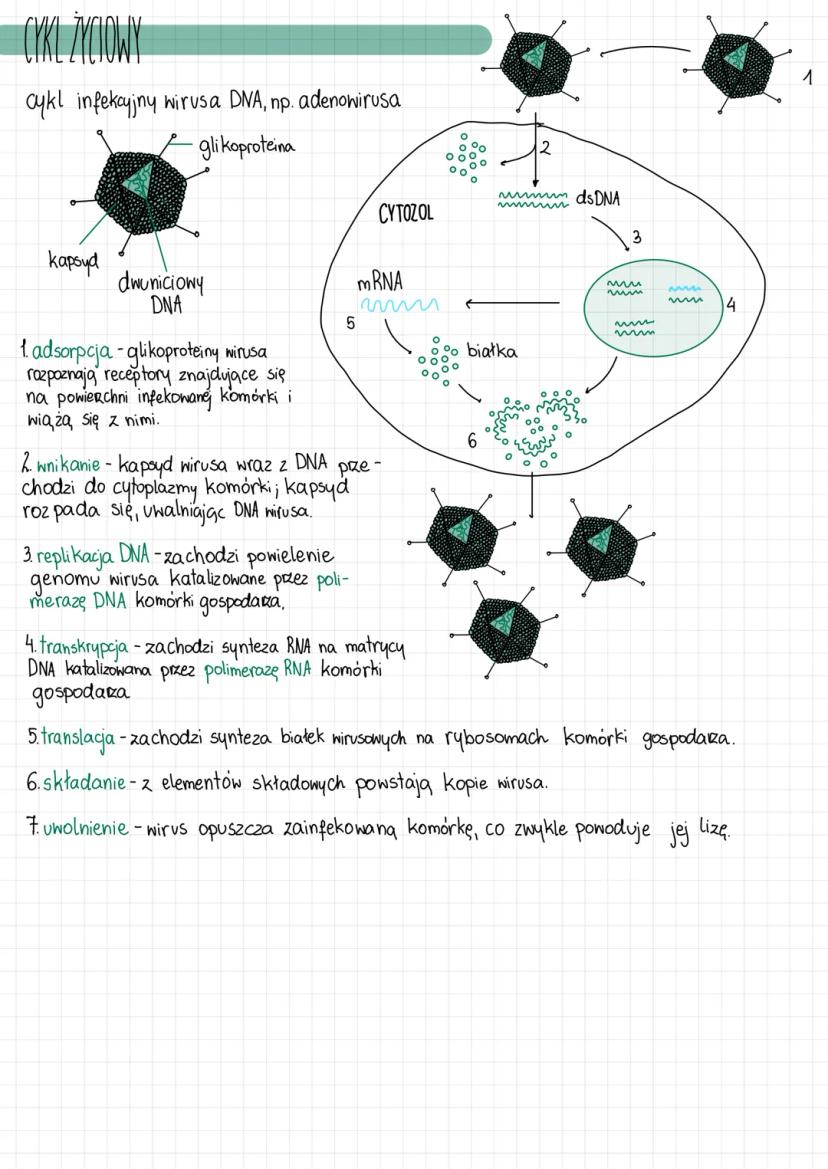 CYKL ŻYCIOWY
cykl infekcyjny wirusa DNA, np. adenowirusa
glikoproteina
kapsyd
dwuniciowy
DNA
1
2
dsDNA
CYTOZOL
3
mRNA
4
5
białka
6
1. adsorpcja - glikoproteiny wirusa
rozpoznają receptory znajdujące się
na powierzchni infekowanej komórki i
wiążą się z nimi.
2. wnikanie - kapsyd wirusa wraz z DNA prze-
chodzi do cytoplazmy komórki; kapsyd
rozpada się, uwalniając DNA wirusa.
3. replikacja DNA - zachodzi powielenie
genomu wirusa katalizowane przez poli-
merazę DNA komórki gospodarza.
4. transkrypcja - zachodzi synteza RNA na matrycy
DNA katalizowana przez polimerazę RNA komórki
gospodarza
5. translacja - zachodzi synteza białek wirusowych na rybosomach komórki gospodarza.
6. składanie - z elementów składowych powstają kopie wirusa.
7. uwolnienie - wirus opuszcza zainfekowaną komórkę, co zwykle powoduje jej lizę.